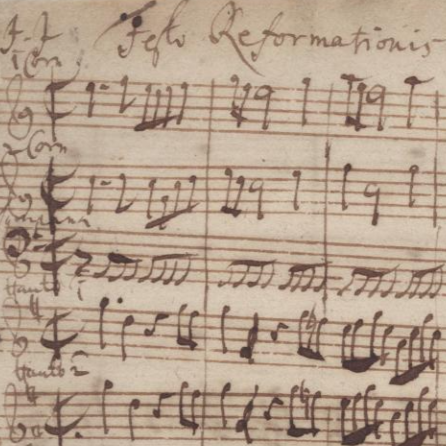 J. J. Festo Reformationis
1 Corn
2 Corn
Hautb 1
Hautb 2